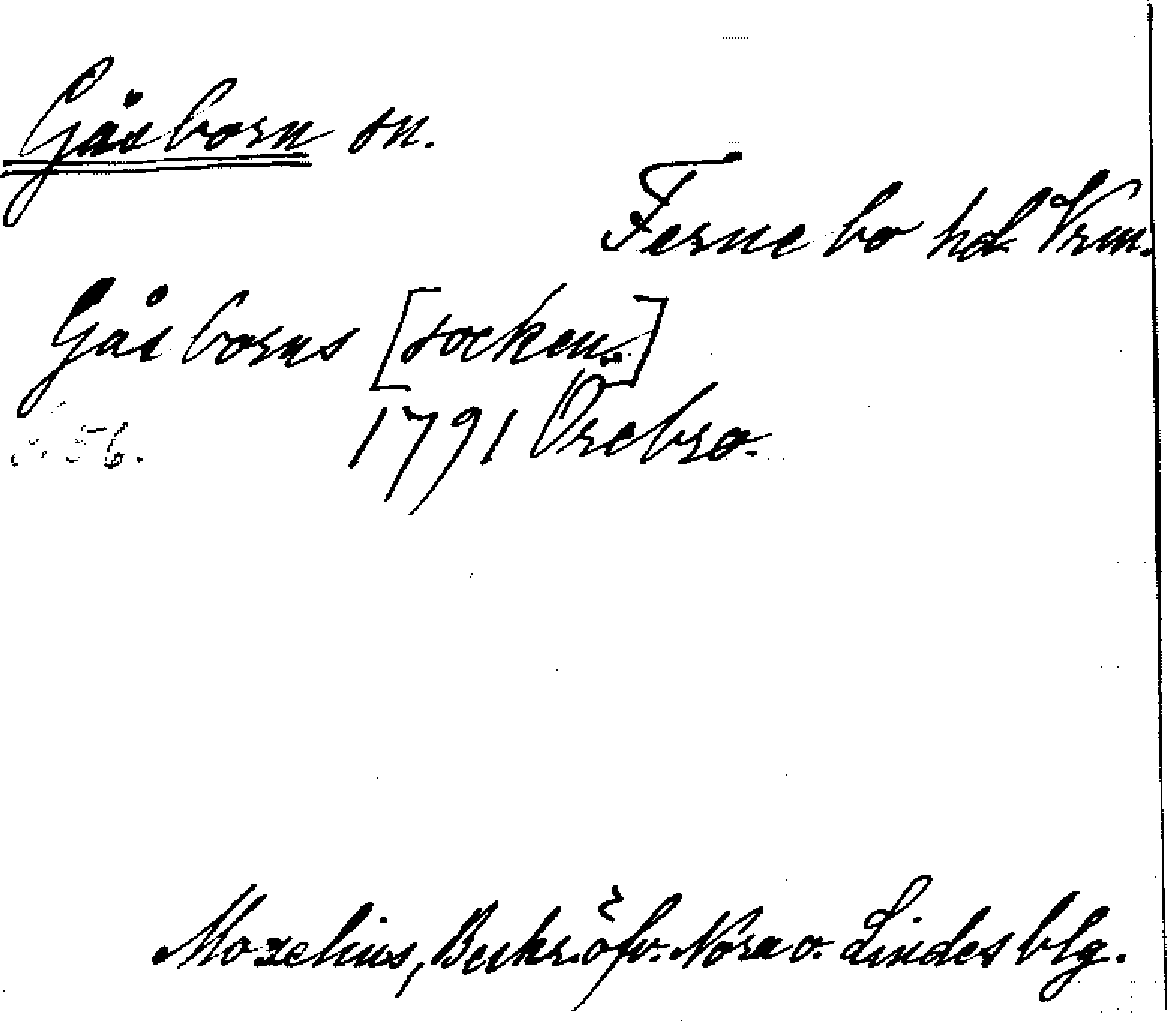 Gåsborn sn.
Fernebo hd Vrm.
Gåsborns [socken.]
1791 Örebro.
s. 56.
Moxelius, Beskr. öfv. Nora o. Lindes blg.